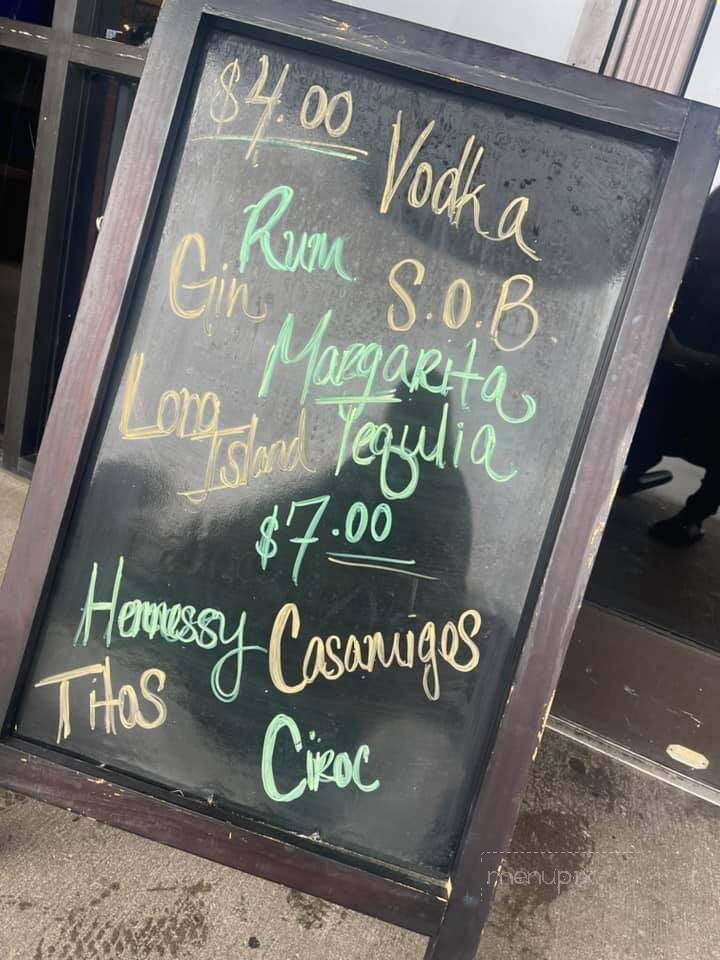 $4.00
Vodka
Rum
Gin
S.O.B
Margarita
Long
Island
Tequlia
$7.00
Hennessy
Casamigos
Titos
Ciroc
menupix